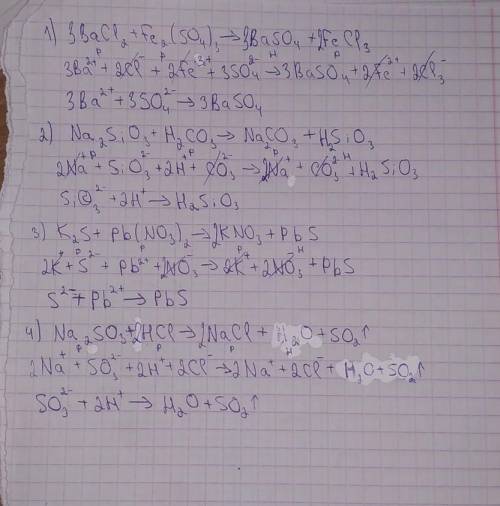 1) 3BaCl₂ + Fe₂(SO₄)₃ → 3BaSO₄ + 2FeCl₃
р р н р
3Ba²⁺ + 2Cl⁻ + 2Fe³⁺ + 3SO₄²⁻ → 3BaSO₄ + 2Fe²⁺ + 2Cl₃⁻
3Ba²⁺ + 3SO₄²⁻ → 3BaSO₄
2) Na₂SiO₃ + H₂CO₃ → NaCO₃ + H₂SiO₃
р р р н
2Na⁺ + SiO₃²⁻ + 2H⁺ + CO₃²⁻ → 2Na⁺ + CO₃²⁻ + H₂SiO₃
SiO₃²⁻ + 2H⁺ → H₂SiO₃
3) K₂S + Pb(NO₃)₂ → 2KNO₃ + PbS
р р р н
2K⁺ + S²⁻ + Pb²⁺ + 2NO₃⁻ → 2K⁺ + 2NO₃⁻ + PbS
S²⁻ + Pb²⁺ → PbS
4) Na₂SO₃ + 2HCl → 2NaCl + H₂O + SO₂↑
р р р н
2Na⁺ + SO₃²⁻ + 2H⁺ + 2Cl⁻ → 2Na⁺ + 2Cl⁻ + H₂O + SO₂↑
SO₃²⁻ + 2H⁺ → H₂O + SO₂↑